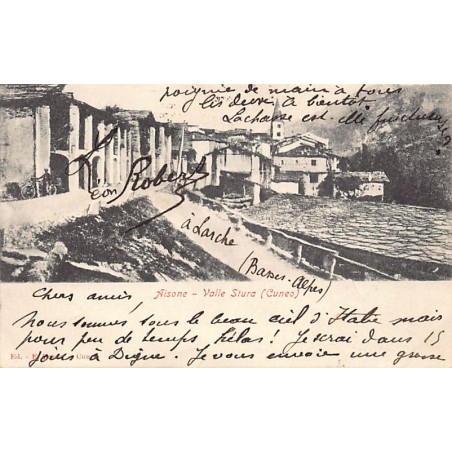 poignée de main à tous
lis devré à bientôt.
La chasse est-elle fructueuse?
Léon Robert
à Larche
(Basses-Alpes)
Aisone - Valle Stura (Cuneo)
Chers amis,
Nous sommes sous le beau ciel d'Italie mais
pour peu de temps, hélas! Je serai dans 15
Ed. -
jours à Digne. Je vous envoie une grosse